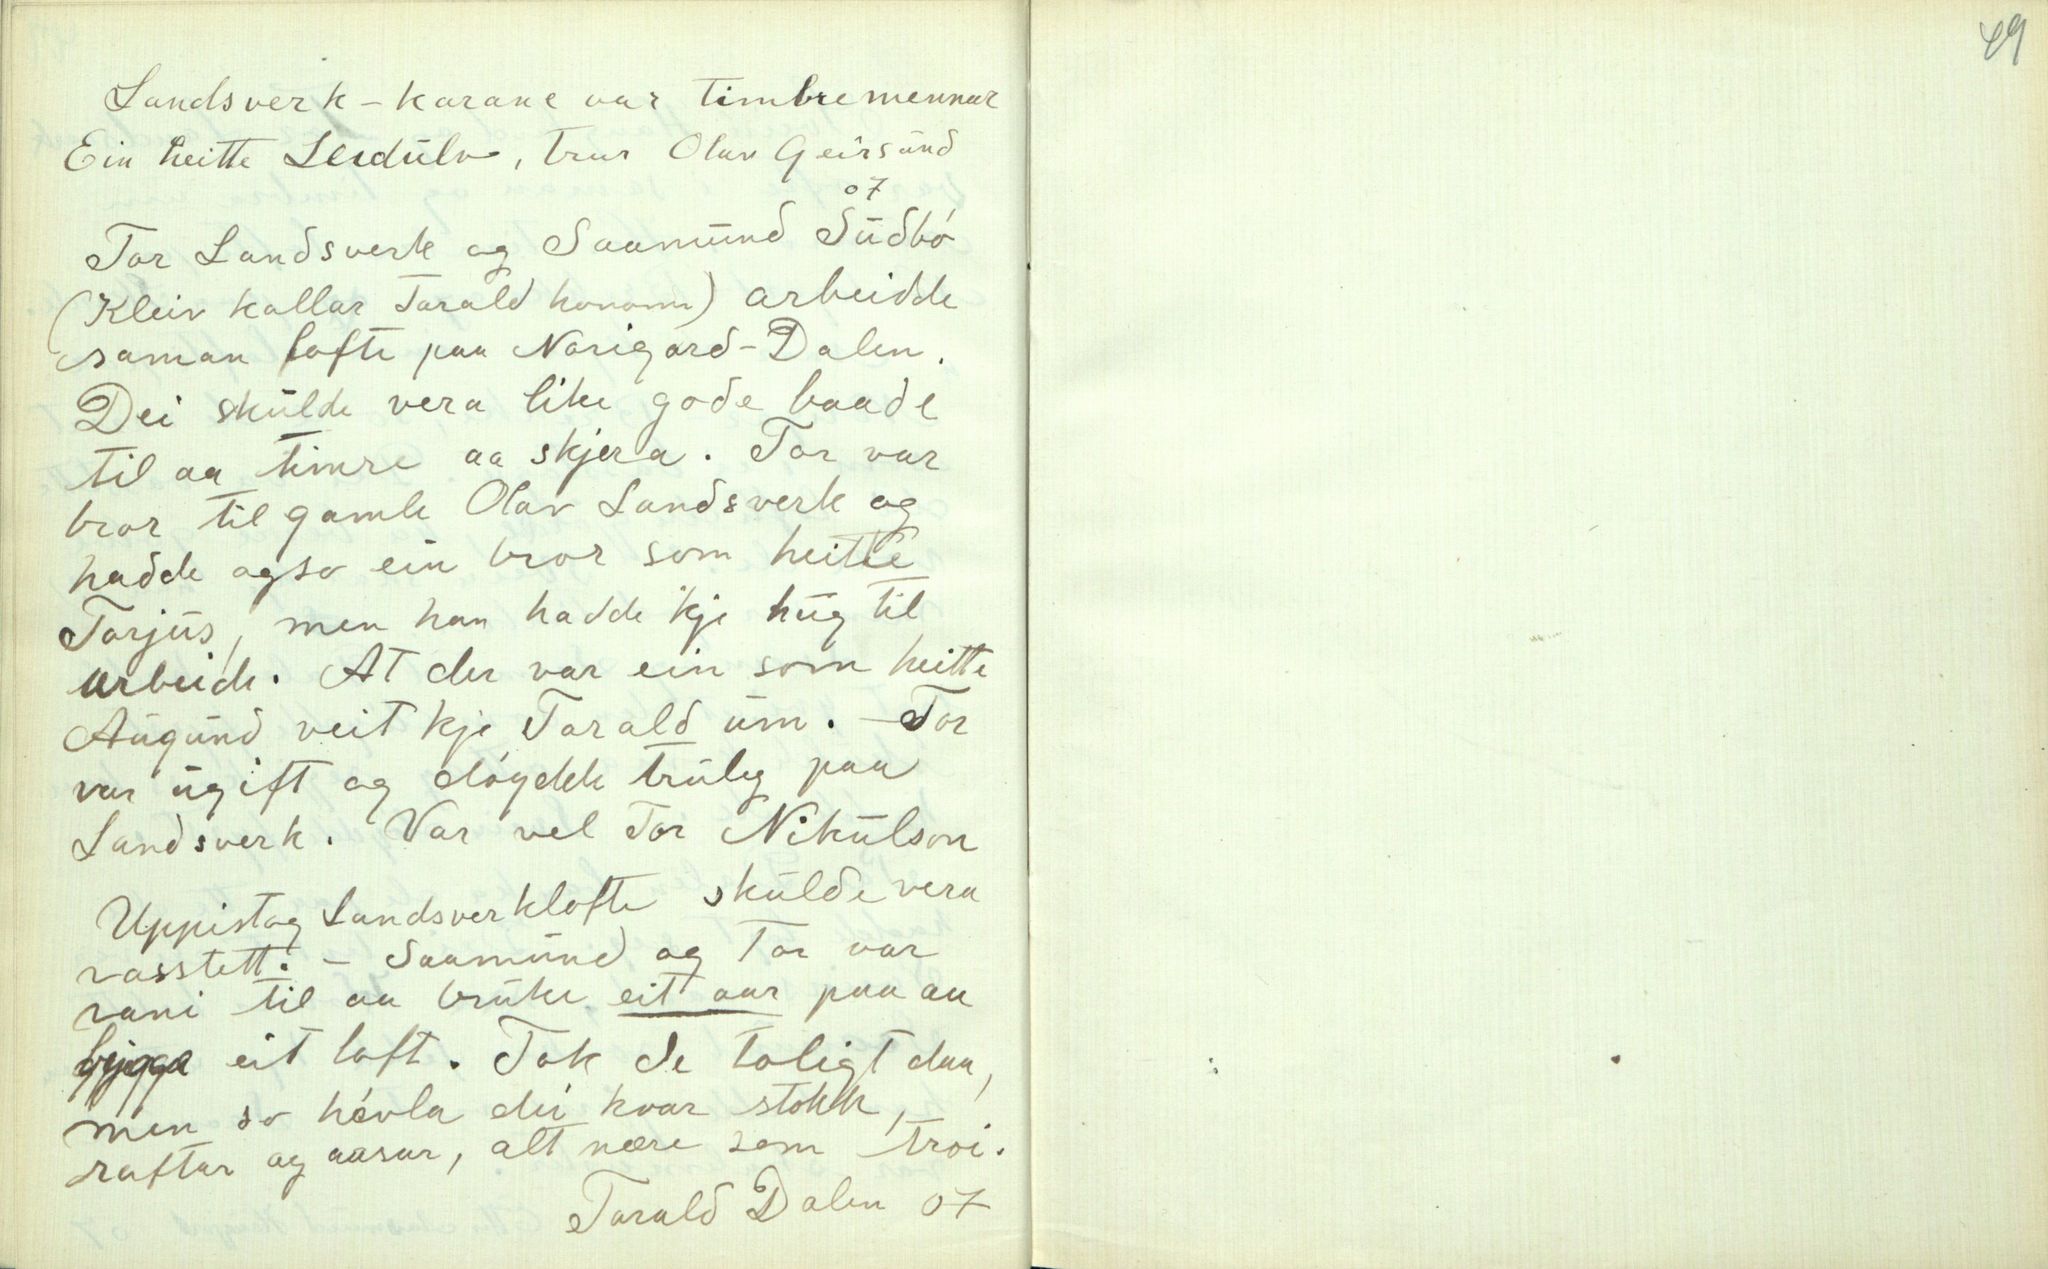 49
Landsverk-karane var timbremennar
Ein heitte Leidulv, trur Olav Geirsund
07
Tor Landsverk og Saamund Sudbó
(Kleiv kallar Tarald honom) arbeidde
saman lofte paa Norigard-Dalen.
Dei skulde vera like gode baade
til aa timre aa skjera. Tor var
bror til gamle Olav Landsverk og
hadde ogso ein bror som heitte
Torjus, men han hadde 'kje hug til
arbeide. At der var ein som heitte
Augund veit kje Tarald um. – Tor
var ugift og dóydde truleg paa
Landsverk. Var vel Tor Nikulson
Uppistog Landsverklofte skulde vera
vasstett. – Saamund og Tor var
vani til aa bruke eit aar paa aa
byggja eit loft. Tok de toligt daa,
men so hóvla dei kvar stokk,
raftar og aasar, alt nære som troi.
Tarald Dalen 07